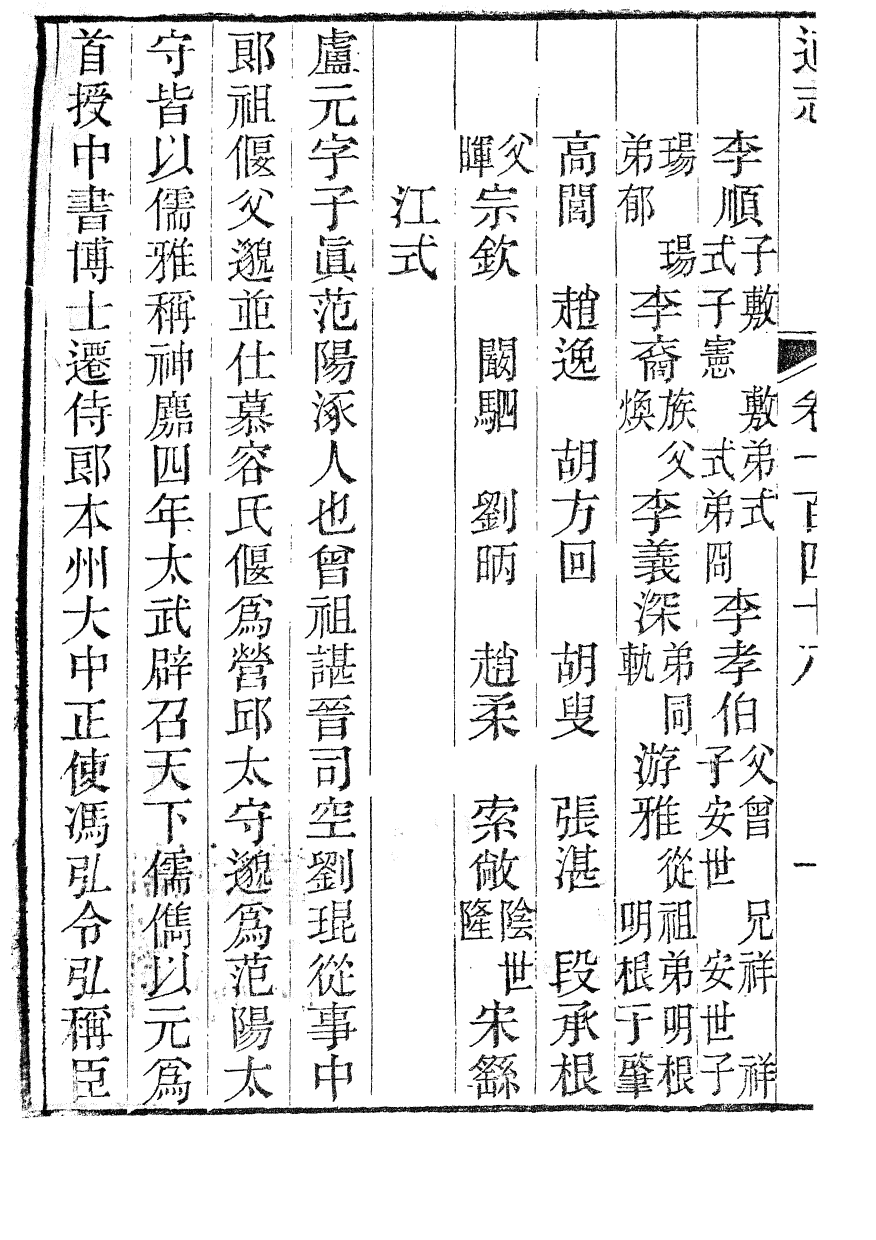 通志 卷一百四十八 一
李順 子敷 敷弟式 式子憲 式弟冏 李孝伯 父曾 兄祥 祥子安世 安世子
瑒 瑒弟郁 李裔 族父煥 李義深 弟同軌 游雅 從祖弟明根 明根子肇
高閭 趙逸 胡方回 胡叟 張湛 段承根
父暉 宗欽 闞駰 劉昞 趙柔 索敞 陰世隆 宋繇
江式
盧元字子眞范陽涿人也曾祖諶晉司空劉琨從事中
郞祖偃父邈並仕慕容氏偃爲營邱太守邈爲范陽太
守皆以儒雅稱神䴥四年太武辟召天下儒儁以元爲
首授中書博士遷侍郞本州大中正使馮弘令弘稱臣